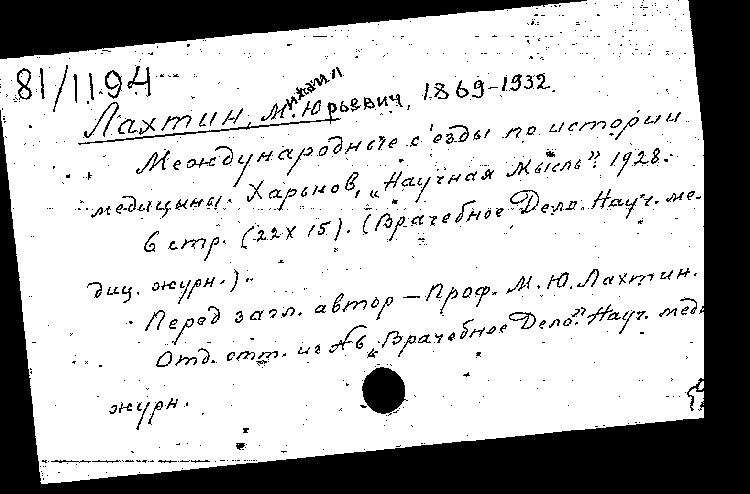 81/1194
Лахтин, Михаил Юрьевич, 1869-1932.
Международные с'езды по истории
медицыны. Харьков, „Научная Мысль". 1928.
6 стр. (22х15). (Врачебное Дело. Науч. ме-
диц. журн.).
Перед загл. автор — Проф. М. Ю. Лахтин.
Отд. отт. из №6 „Врачебное Дело". Науч. меди
журн.